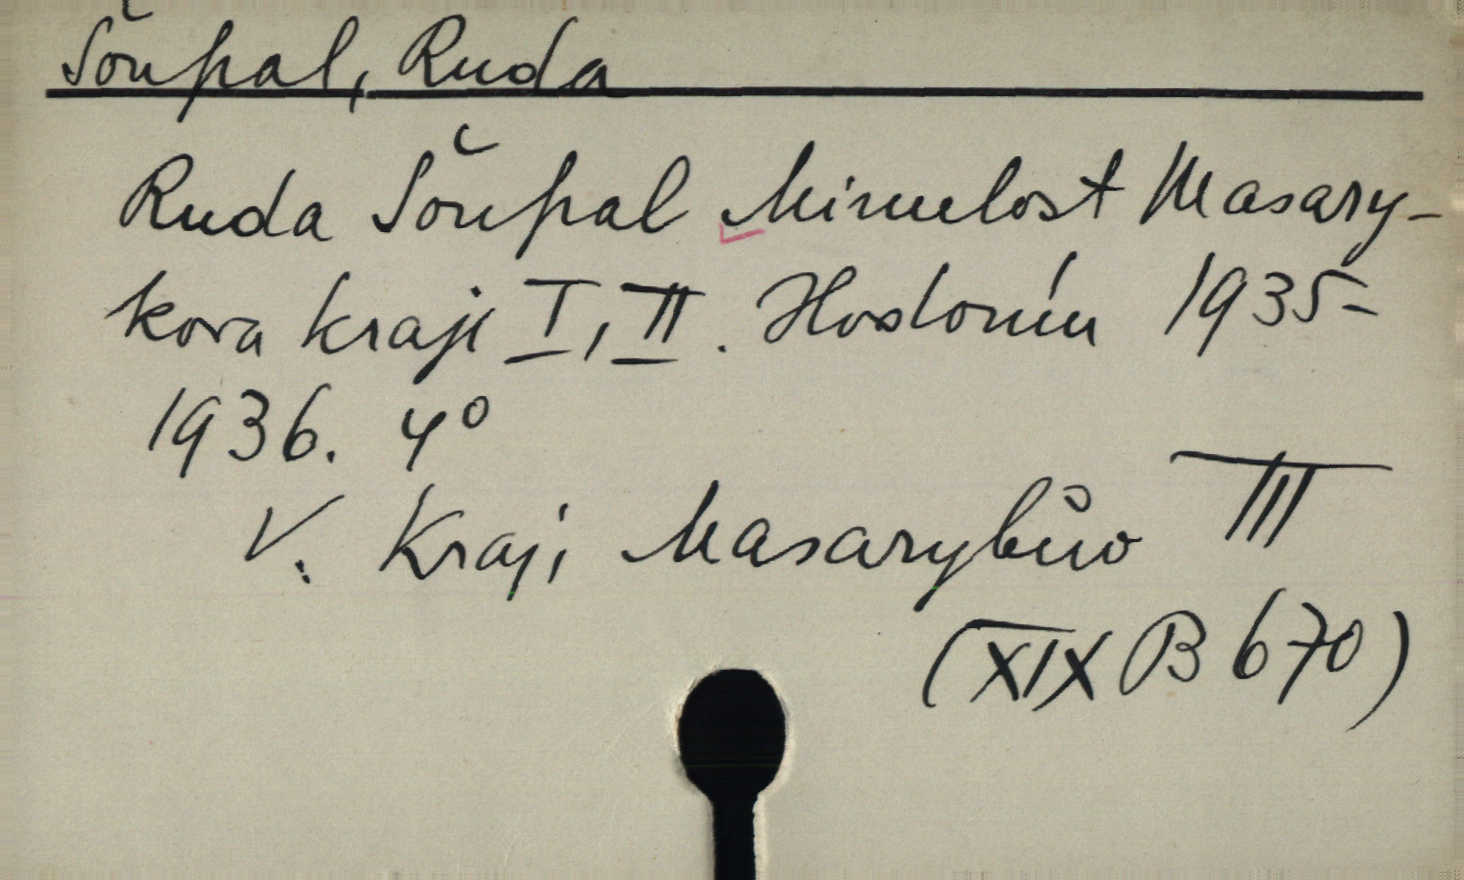 Šoupal, Ruda
Ruda Šoupal Minulost Masary-
kova kraji I, II. Hodonín 1935-
1936. 4°
V. Kraj, Masarykův III
(XIX B 670)